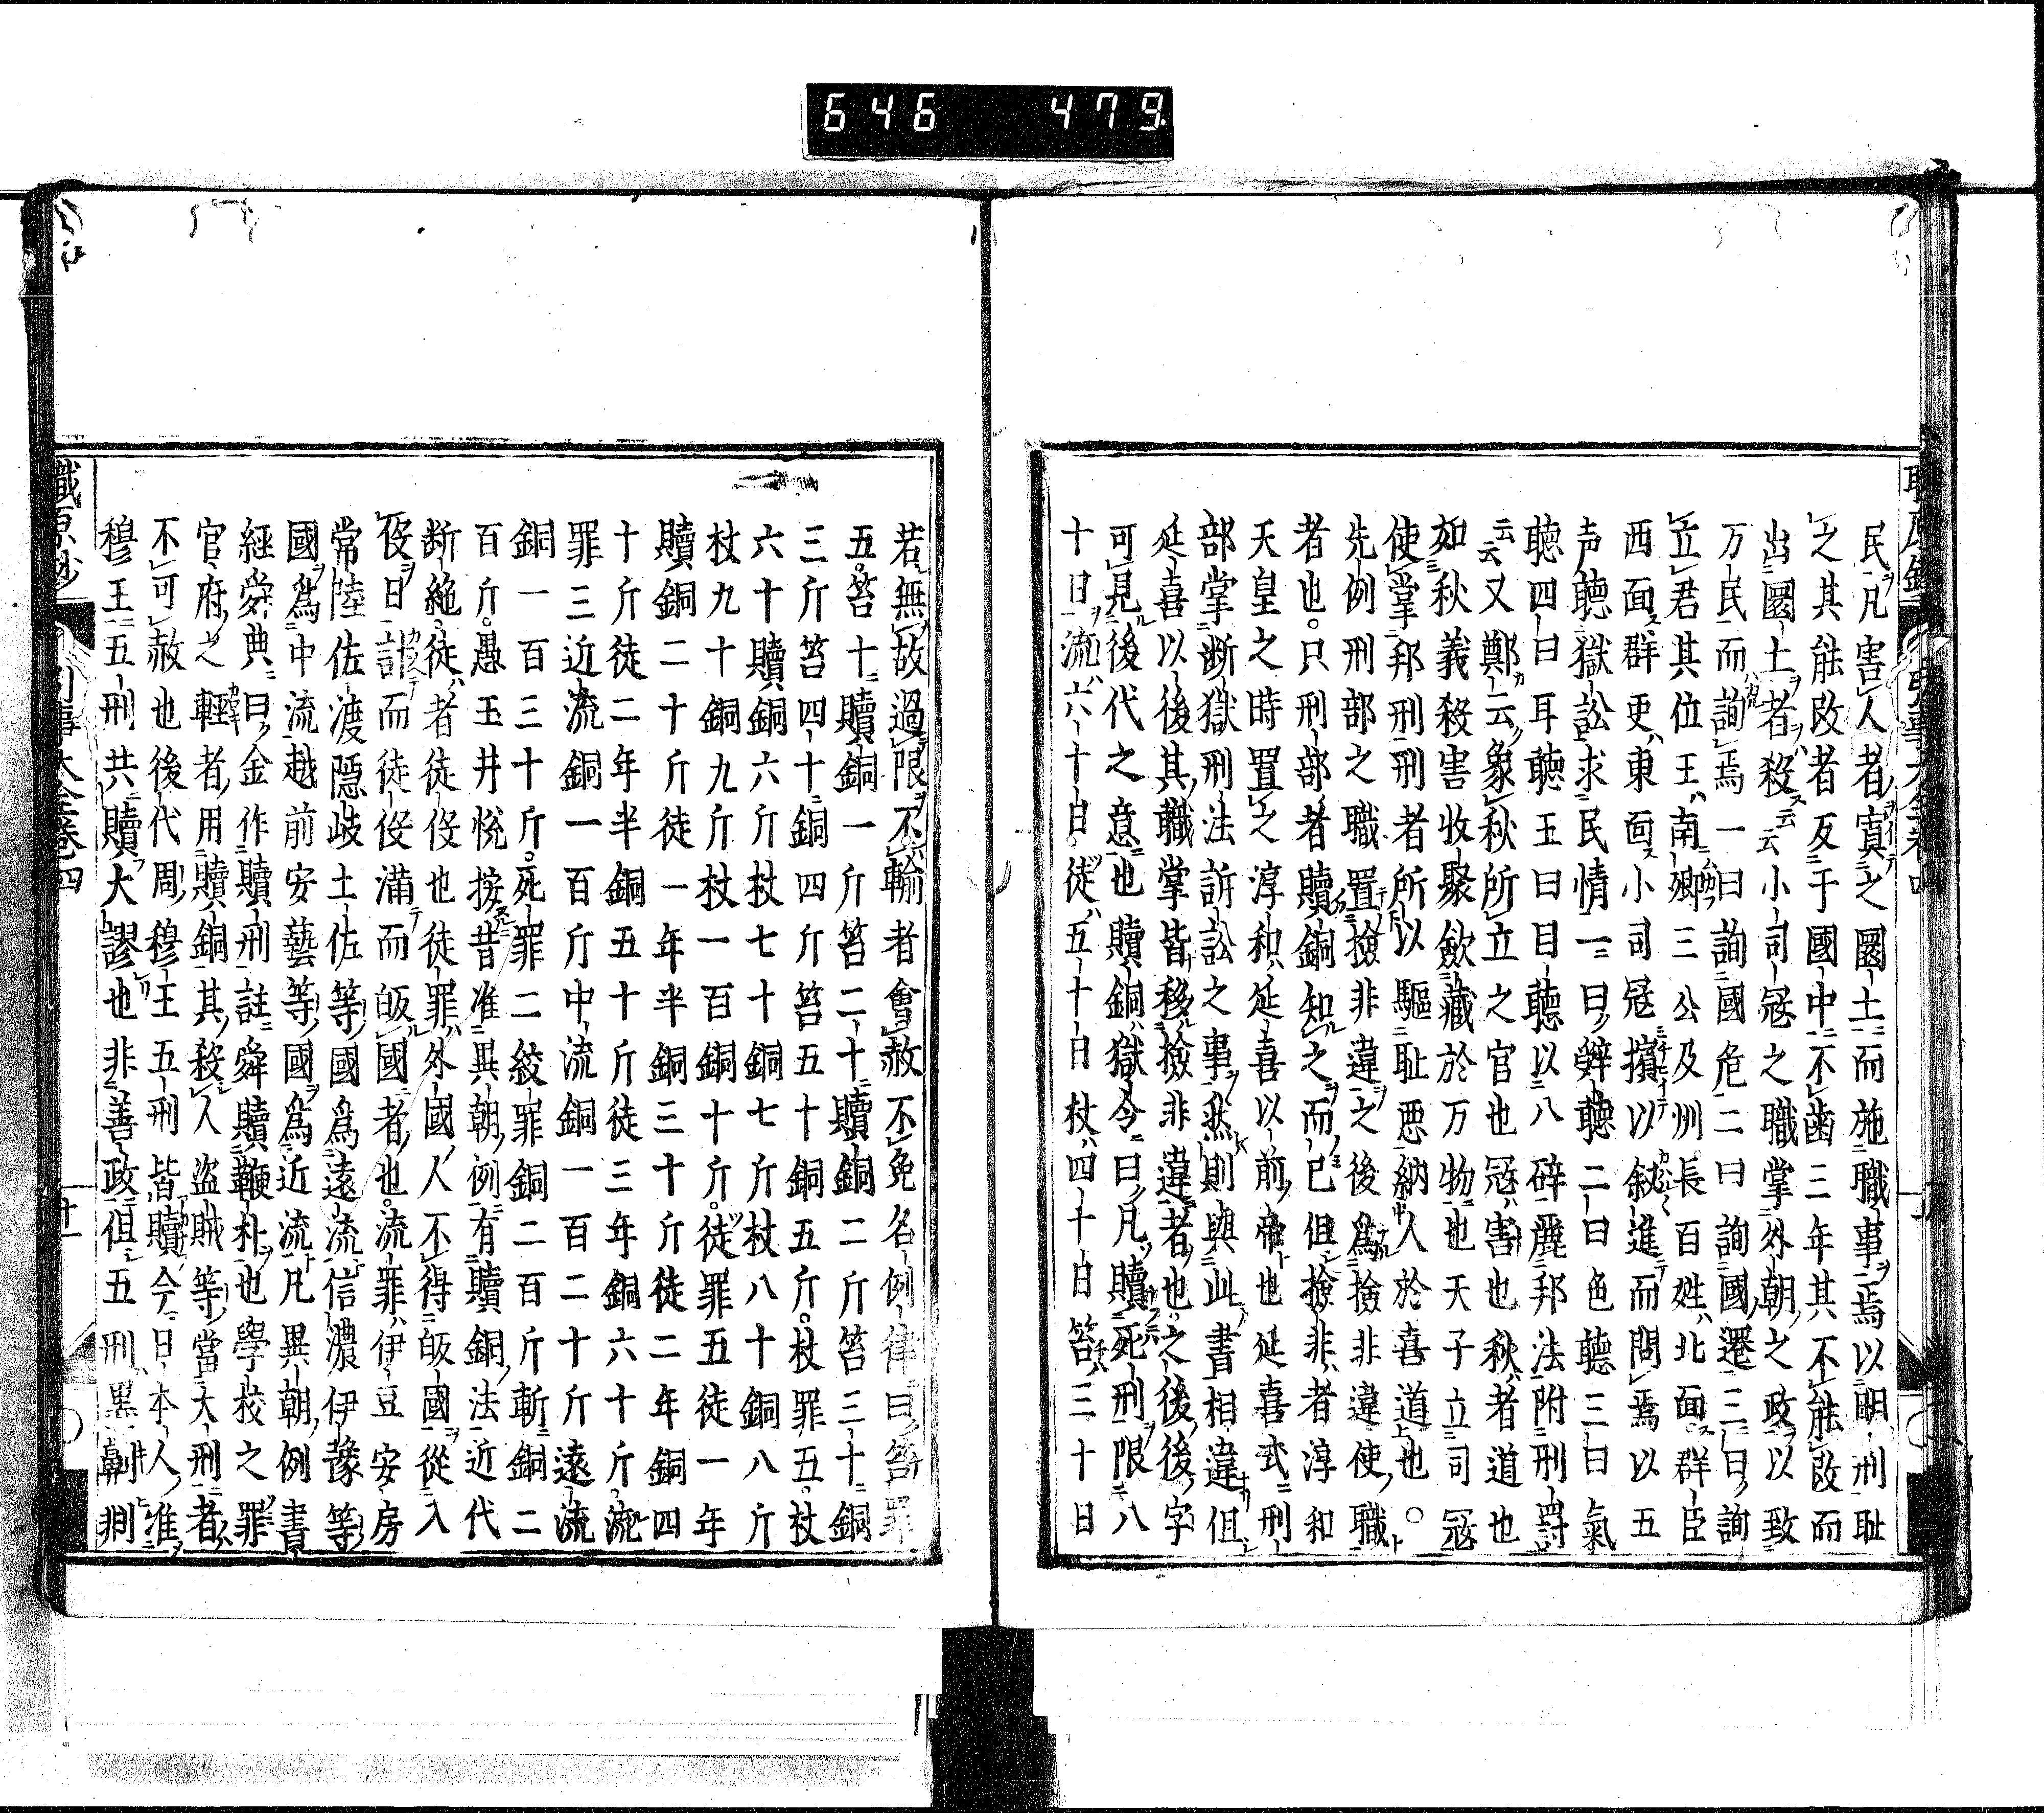 646 479
民凡害人者寘之圜土而施職事焉以明刑耻
之其能改者反于國中不歯三年其不能改而
出圜土者殺云云小司冦之職掌外朝之政以致
万民而詢焉一曰詢國危二曰詢國遷三曰詢
立君其位王南郷三公及州長百姓北面群臣
西面群吏東面小司冦擯以叙進而問焉以五
声聴獄訟求民情一曰辞聴二曰色聴三曰氣
聴四曰耳聴五曰目聴以八辟麗邦法附刑罰
云云又鄭云象秋所立之官也冦害也秋者道也
如秋義殺害收聚歛藏於万物也天子立司冦
使掌邦刑刑者所以驅耻悪納人於喜道也○
先例刑部之職置撿非違之後為撿非違使職
者也只刑部者贖銅知之而已但撿非者淳和
天皇之時置之淳和延喜以前帝也延喜式刑
部掌断獄刑法訴訟之事然則與此書相違但
延喜以後其職掌皆移撿非違者也之後後字
可見後代之意也贖銅獄令曰凡贖死刑限八
十日流六十日徒五十日杖四十日笞三十日
若無故過限不輸者會赦不免名例律曰笞罪
五笞十贖銅一斤笞二十贖銅二斤笞三十銅
三斤笞四十銅四斤笞五十銅五斤杖罪五杖
六十贖銅六斤杖七十銅七斤杖八十銅八斤
杖九十銅九斤杖一百銅十斤徒罪五徒一年
贖銅二十斤徒一年半銅三十斤徒二年銅四
十斤徒二年半銅五十斤徒三年銅六十斤流
罪三近流銅一百斤中流銅一百二十斤遠流
銅一百三十斤死罪二絞罪銅二百斤斬銅二
百斤愚玉井悦按昔准異朝例有贖銅法近代
断絶徒者徒役也徒罪外國人不得皈國從入
役日計而徒役満而皈國者也流罪伊豆安房
常陸佐渡隠岐土佐等國為遠流信濃伊豫等
國為中流越前安藝等國為近流凡異朝例書
經舜典曰金作贖刑註舜贖鞭朴也學校之罪
官府之輕者用贖銅其殺人盗賊等當大刑者
不可赦也後代周穆王五刑皆贖今日本人准
穆王五刑共贖大謬也非善政但五刑墨劓剕
職原抄
大全巻四
廿一